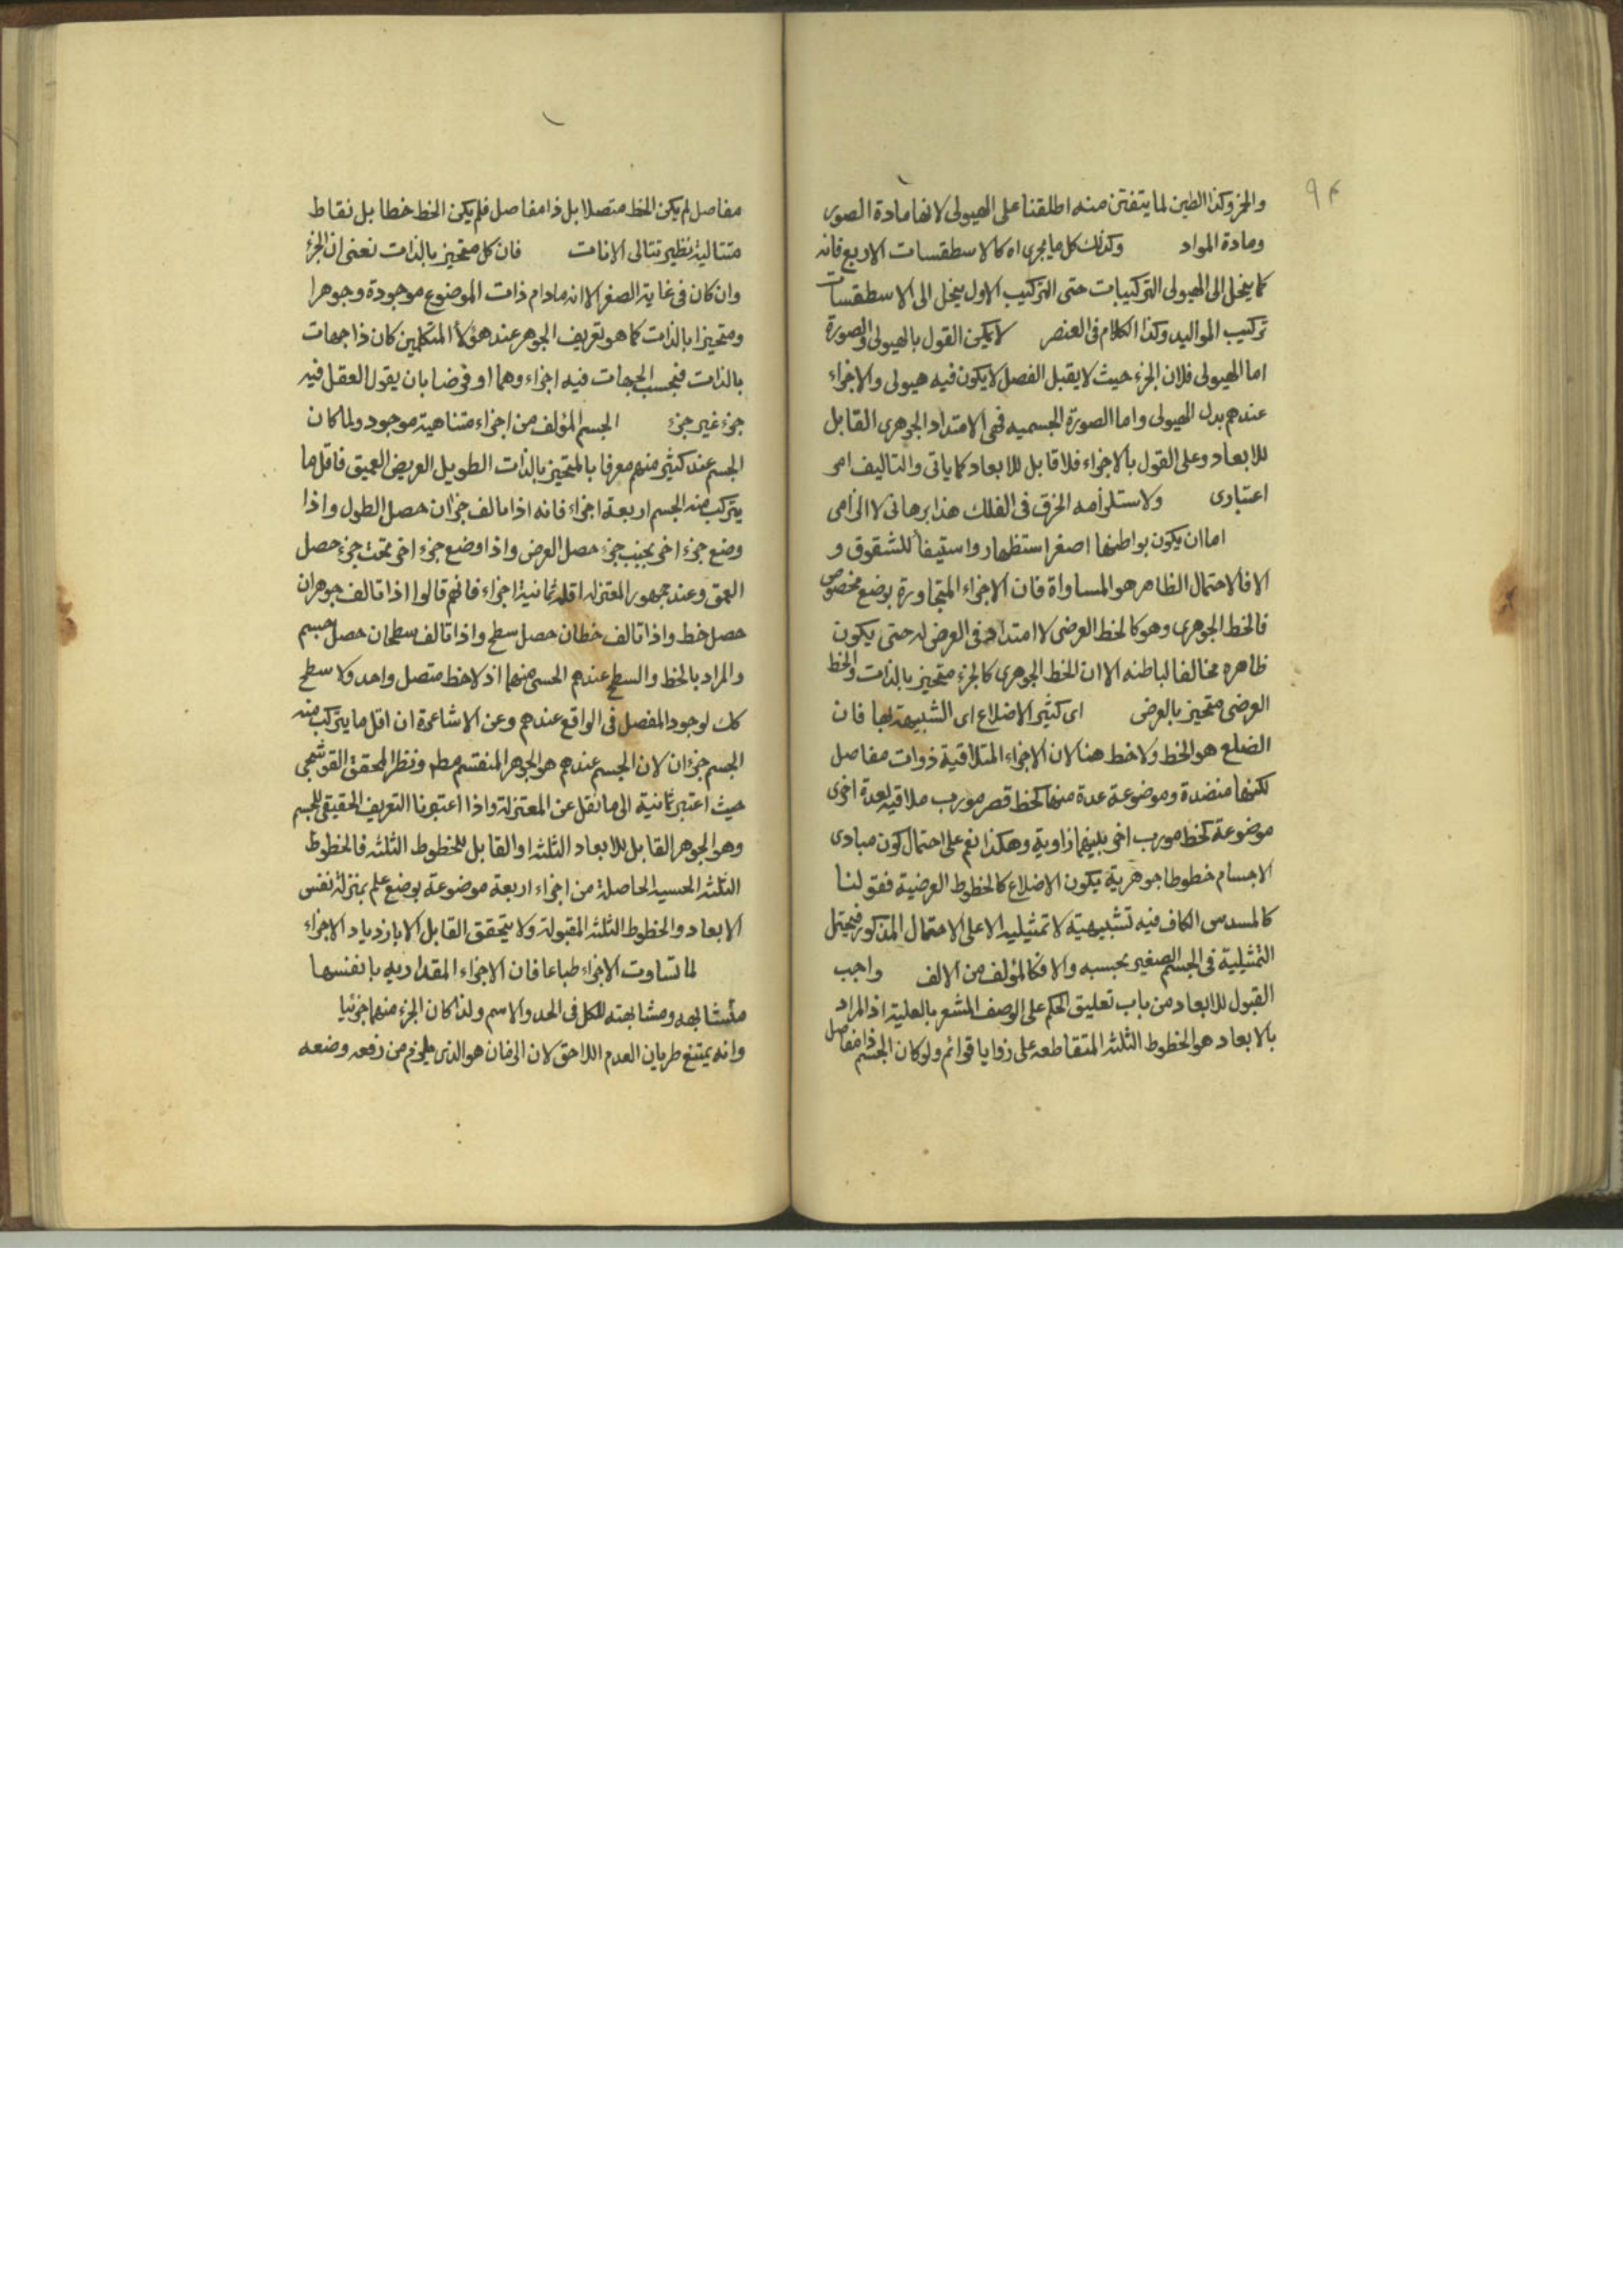 ٩٤
والخز وكذا الطين لما يتفتن منه اطلقنا على الهيولى لانها مادة الصور
ومادة المواد وكذلك كل ما يجرى اه كالاسطقسات الاربع فانه
كما ينحل الى الهيولى التركيبات حتى التركيب الاول ينحل الى الاسطقسات
تركيب المواليد وكذا الكلام فى العنصر لا يمكن القول بالهيولى والصورة
اما الهيولى فلان الجزء حيث لا يقبل الفصل لا يكون فيه هيولى والاجزاء
عندهم بدل الهيولى واما الصورة الجسميه فهى الامتداد الجوهرى القابل
للابعاد وعلى القول بالاجزاء فلا قابل للابعاد كما ياتى والتاليف امر
اعتبارى ولاستلزامه الخرق فى الفلك هذا برهانى لا الزامى
اما ان يكون بواطنها اصغر استظهار واستيفاء للشقوق و
الا فالاحتمال الظاهر هو المساواة فان الاجزاء المتجاورة بوضع مخصوص
فالخط الجوهرى وهو كالخط العرضى لا امتداد فى العرض له حتى يكون
ظاهره مخالفا لباطنه الا ان الخط الجوهرى كالجزء متحيز بالذات والخط
العرضى متحيز بالعرض اى كثير الاضلاع اى الشبيهة بها فان
الضلع هو الخط ولا خط هنا لان الاجزاء المتلاقية ذوات مفاصل
لكنها منضدة وموضوعة عدة منها كخط قصر مورب ملاقية لعدة اخرى
موضوعة كخط مورب اخر بينهما زاوية وهكذا نعم على احتمال كون مبادى
الاجسام خطوطا جوهرية يكون الاضلاع كالخطوط العرضية فقولنا
كالمسدس الكاف فيه تشبيهية لا تمثيليه الا على الاحتمال المذكور فيحتمل
التمثيلية فى الجسم الصغير بحسبه والا فكالمؤلف من الالف واجب
القبول للابعاد من باب تعليق الحكم على الوصف المشعر بالعلية اذ المراد
بالابعاد هو الخطوط الثلثه المتقاطعه على زوايا قوائم ولو كان الجسم ذا مفاصل
مفاصل لم يكن الخط متصلا بل ذا مفاصل فلم يكن الخط خطا بل نقاط
متتالية نظير تتالى الانات فان كل متحيز بالذات نعنى ان الجزء
وان كان فى غاية الصغر الا انه مادام ذات الموضوع موجودة وجوهرا
ومتحيزا بالذات كما هو تعريف الجوهر عند هؤلاء المتكلمين كان ذا جهات
بالذات فبحسب الجهات فيه اجزاء وهما او فرضا بان يقول العقل فيه
جزء غير جزء الجسم المؤلف من اجزاء متناهية موجود ولما كان
الجسم عند كثير منهم معرفا بالمتحيز بالذات الطويل العريض العميق فاقل ما
يتركب منه الجسم اربعة اجزاء فانه اذا تالف جزءان حصل الطول واذا
وضع جزء اخر بجنب جزء حصل العرض واذا وضع جزء اخر تحت جزء حصل
العمق وعند جمهور المعتزله اقله ثمانية اجزاء فانهم قالوا اذا تالف جوهران
حصل خط واذا تالف خطان حصل سطح واذا تالف سطحان حصل جسم
والمراد بالخط والسطح عندهم الحسى منهما اذ لا خط متصل واحد ولا سطح
كك لوجود المفصل فى الواقع عندهم وعن الاشاعرة ان اقل ما يتركب منه
الجسم جزءان لان الجسم عندهم هو الجوهر المنقسم مطم ونظر المحقق القوشجى
حيث اعتبر ثمانية الى ما نقل عن المعتزلة واذا اعتبرنا التعريف الحقيقى للجسم
وهو الجوهر القابل للابعاد الثلثه او القابل للخطوط الثلثه فالخطوط
الثلثه الحسيه الحاصلة من اجزاء اربعة موضوعة بوضع علم بمنزلة نفس
الابعاد والخطوط الثلثه المقبولة ولا يتحقق القابل الا بازدياد الاجزاء
لما تساوت الاجزاء طباعا فان الاجزاء المقداريه بانفسها
متشابهه ومشابهته للكل فى الحد والاسم ولذا كان الجزء منهما جزئيا
وانه يمتنع طريان العدم اللاحق لان الزمان هو الذى يلزم من رفعه وضعه